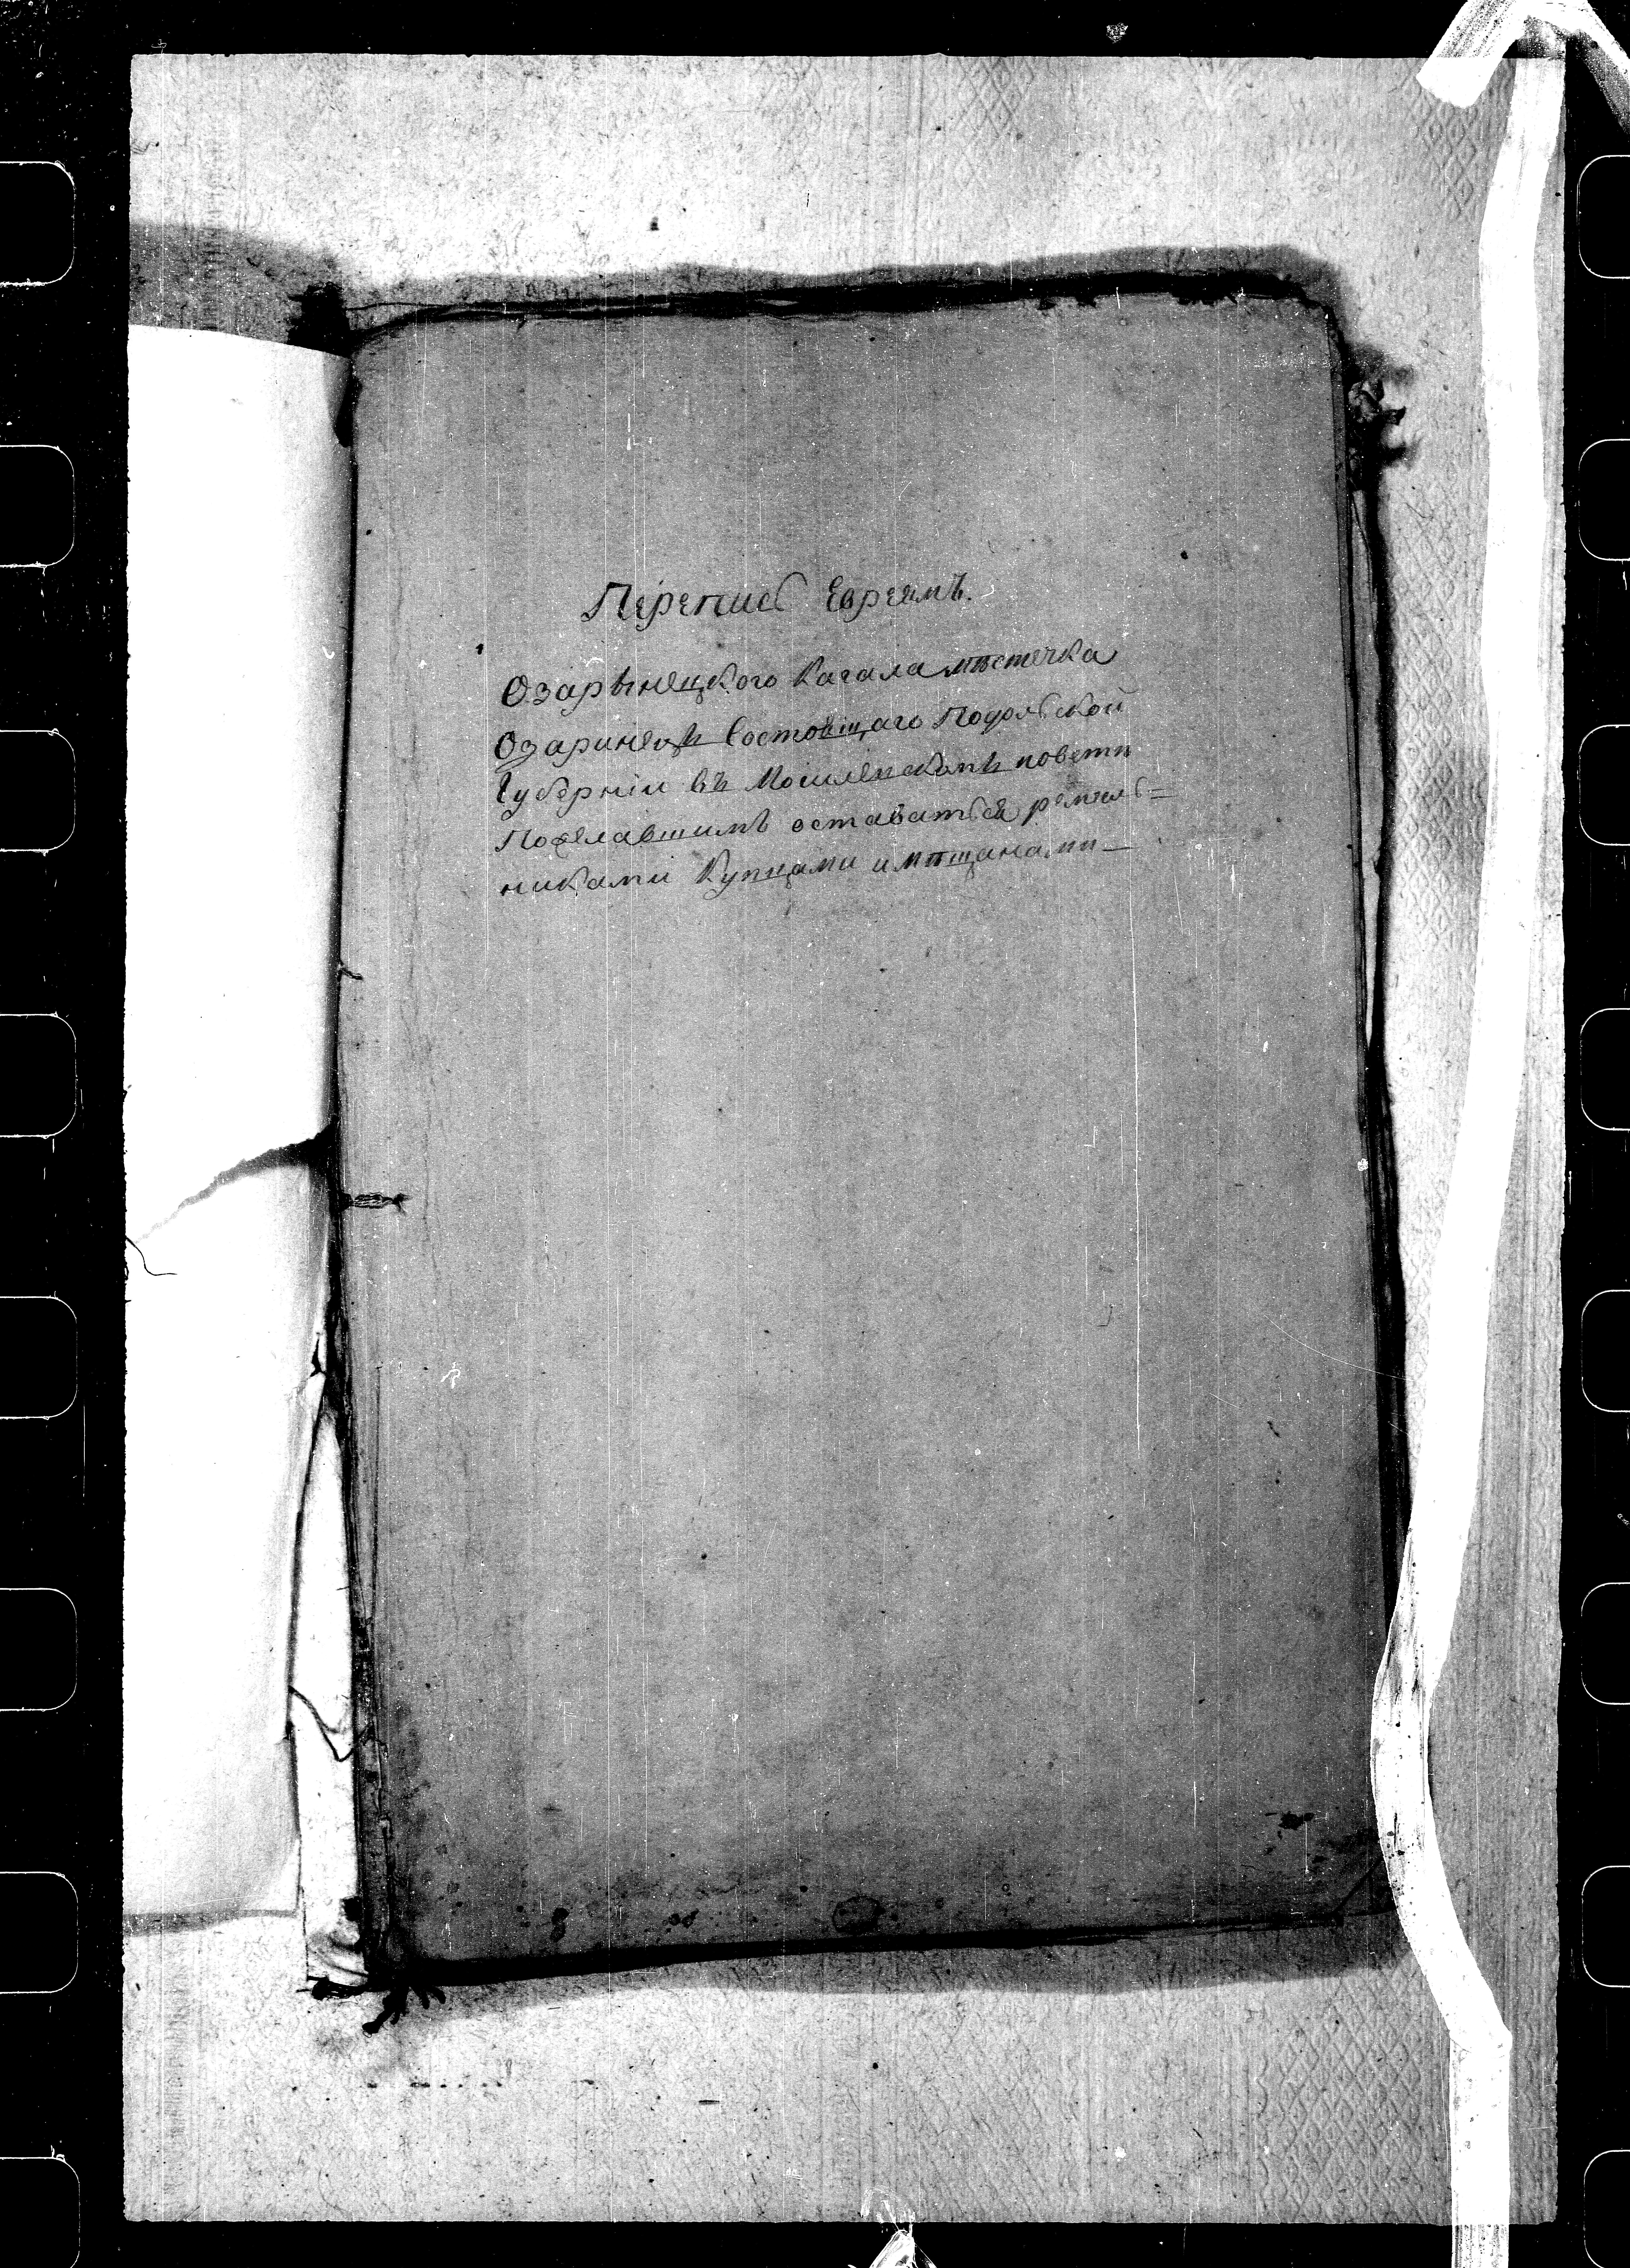 Перепись Евреямъ.
Озарынецкого Кагала мѣстечка
Озаринецъ Состоящаго Подольской
Губерніи въ Могилевскомъ повети
Пожелавшимъ оставаться ремесль=
никами Купцами и мѣщанами—